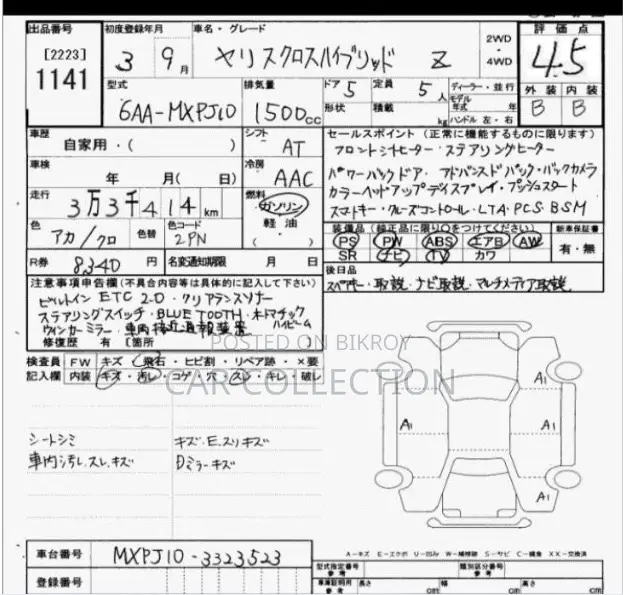 出品番号 初度登録年月 車名・グレード 2WD・4WD 評価点
[2223]
1141
3年 9月 ヤリスクロスハイブリッド Z 4.5
型式 排気量 ドア 5 定員 5人 ディーラー・並行 外装 内装
6AA-MXPJ10 1500cc 形状 積載 kg モデル年式 年 B B
ハンドル 左・右
車歴 自家用・( ) シフト AT
セールスポイント (正常に機能するものに限ります)
フロントシートヒーター・ステアリングヒーター
車検 年 月( 日) 冷房 AAC
パワーバックドア・アドバンスドパーク・バックカメラ
カラーヘッドアップディスプレイ・プッシュスタート
走行 3万3千414km 燃料 ガソリン 軽油 ( )
スマートキー・クルーズコントロール・LTA・PCS・BSM
色 アカ/クロ 色替 色コード 2PN
装備品(純正品に限り○をつけてください) 新車保証書
PS PW ABS エアB AW 有・無
SR ナビ TV カワ
R券 8340円 名変通知期限 月 日
後日品
スペアキー・取説・ナビ取説・マルチメディア取説
注意事項申告欄(不具合内容等は具体的に記入して下さい)
ビルトインETC2.0・クリアランスソナー
ステアリングスイッチ・BLUETOOTH・オートマチック
ハイビーム
ウィンカーミラー・車両接近通報装置
修復歴 有 [箇所
POSTED ON BIKROY
CAR COLLECTION
検査員 FW キズ・飛石・ヒビ割・リペア跡・×要
記入欄 内装 キズ・汚レ・コゲ・穴・スレ・キレ・破レ
A1
A1 A1
A1
シートシミ キズ・E.スリキズ
車内汚レ.スレ.キズ Dミラーキズ
A-キズ E-エクボ U-凹み W-補修跡 S-サビ C-腐食 XX-交換済
車台番号 MXPJ10-3323523
型式指定番号 参考 類別区分番号 参考
登録番号 車庫証明用 参考 長さ cm 幅 cm 高さ cm